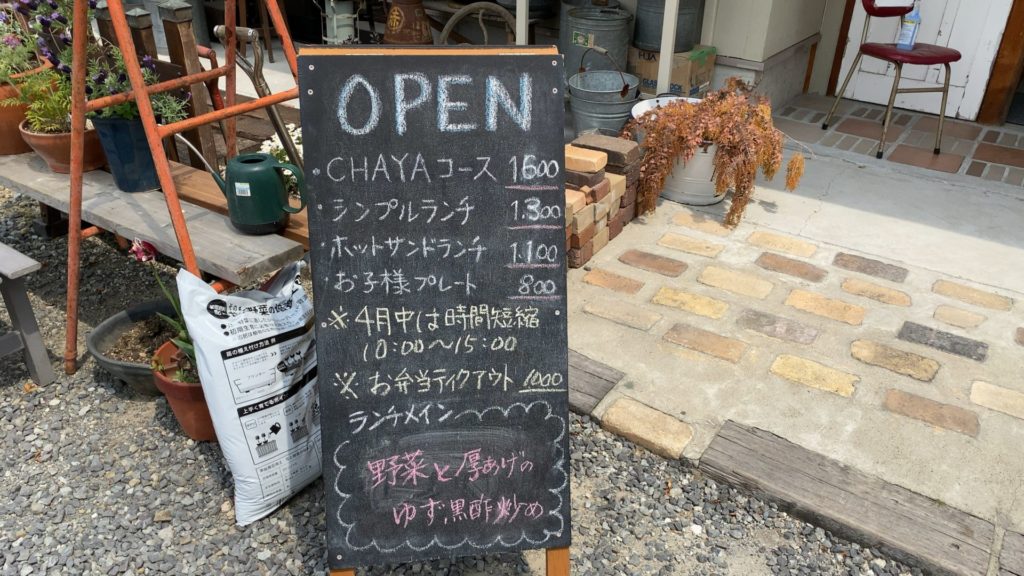 OPEN
・CHAYAコース 1600
・シンプルランチ 1.300
・ホットサンドランチ 1.100
・お子様プレート 800
・※4月中は時間短縮
10:00〜15:00
※お弁当テイクアウト 1000
ランチメイン
野菜と厚あげの
ゆず黒酢炒め